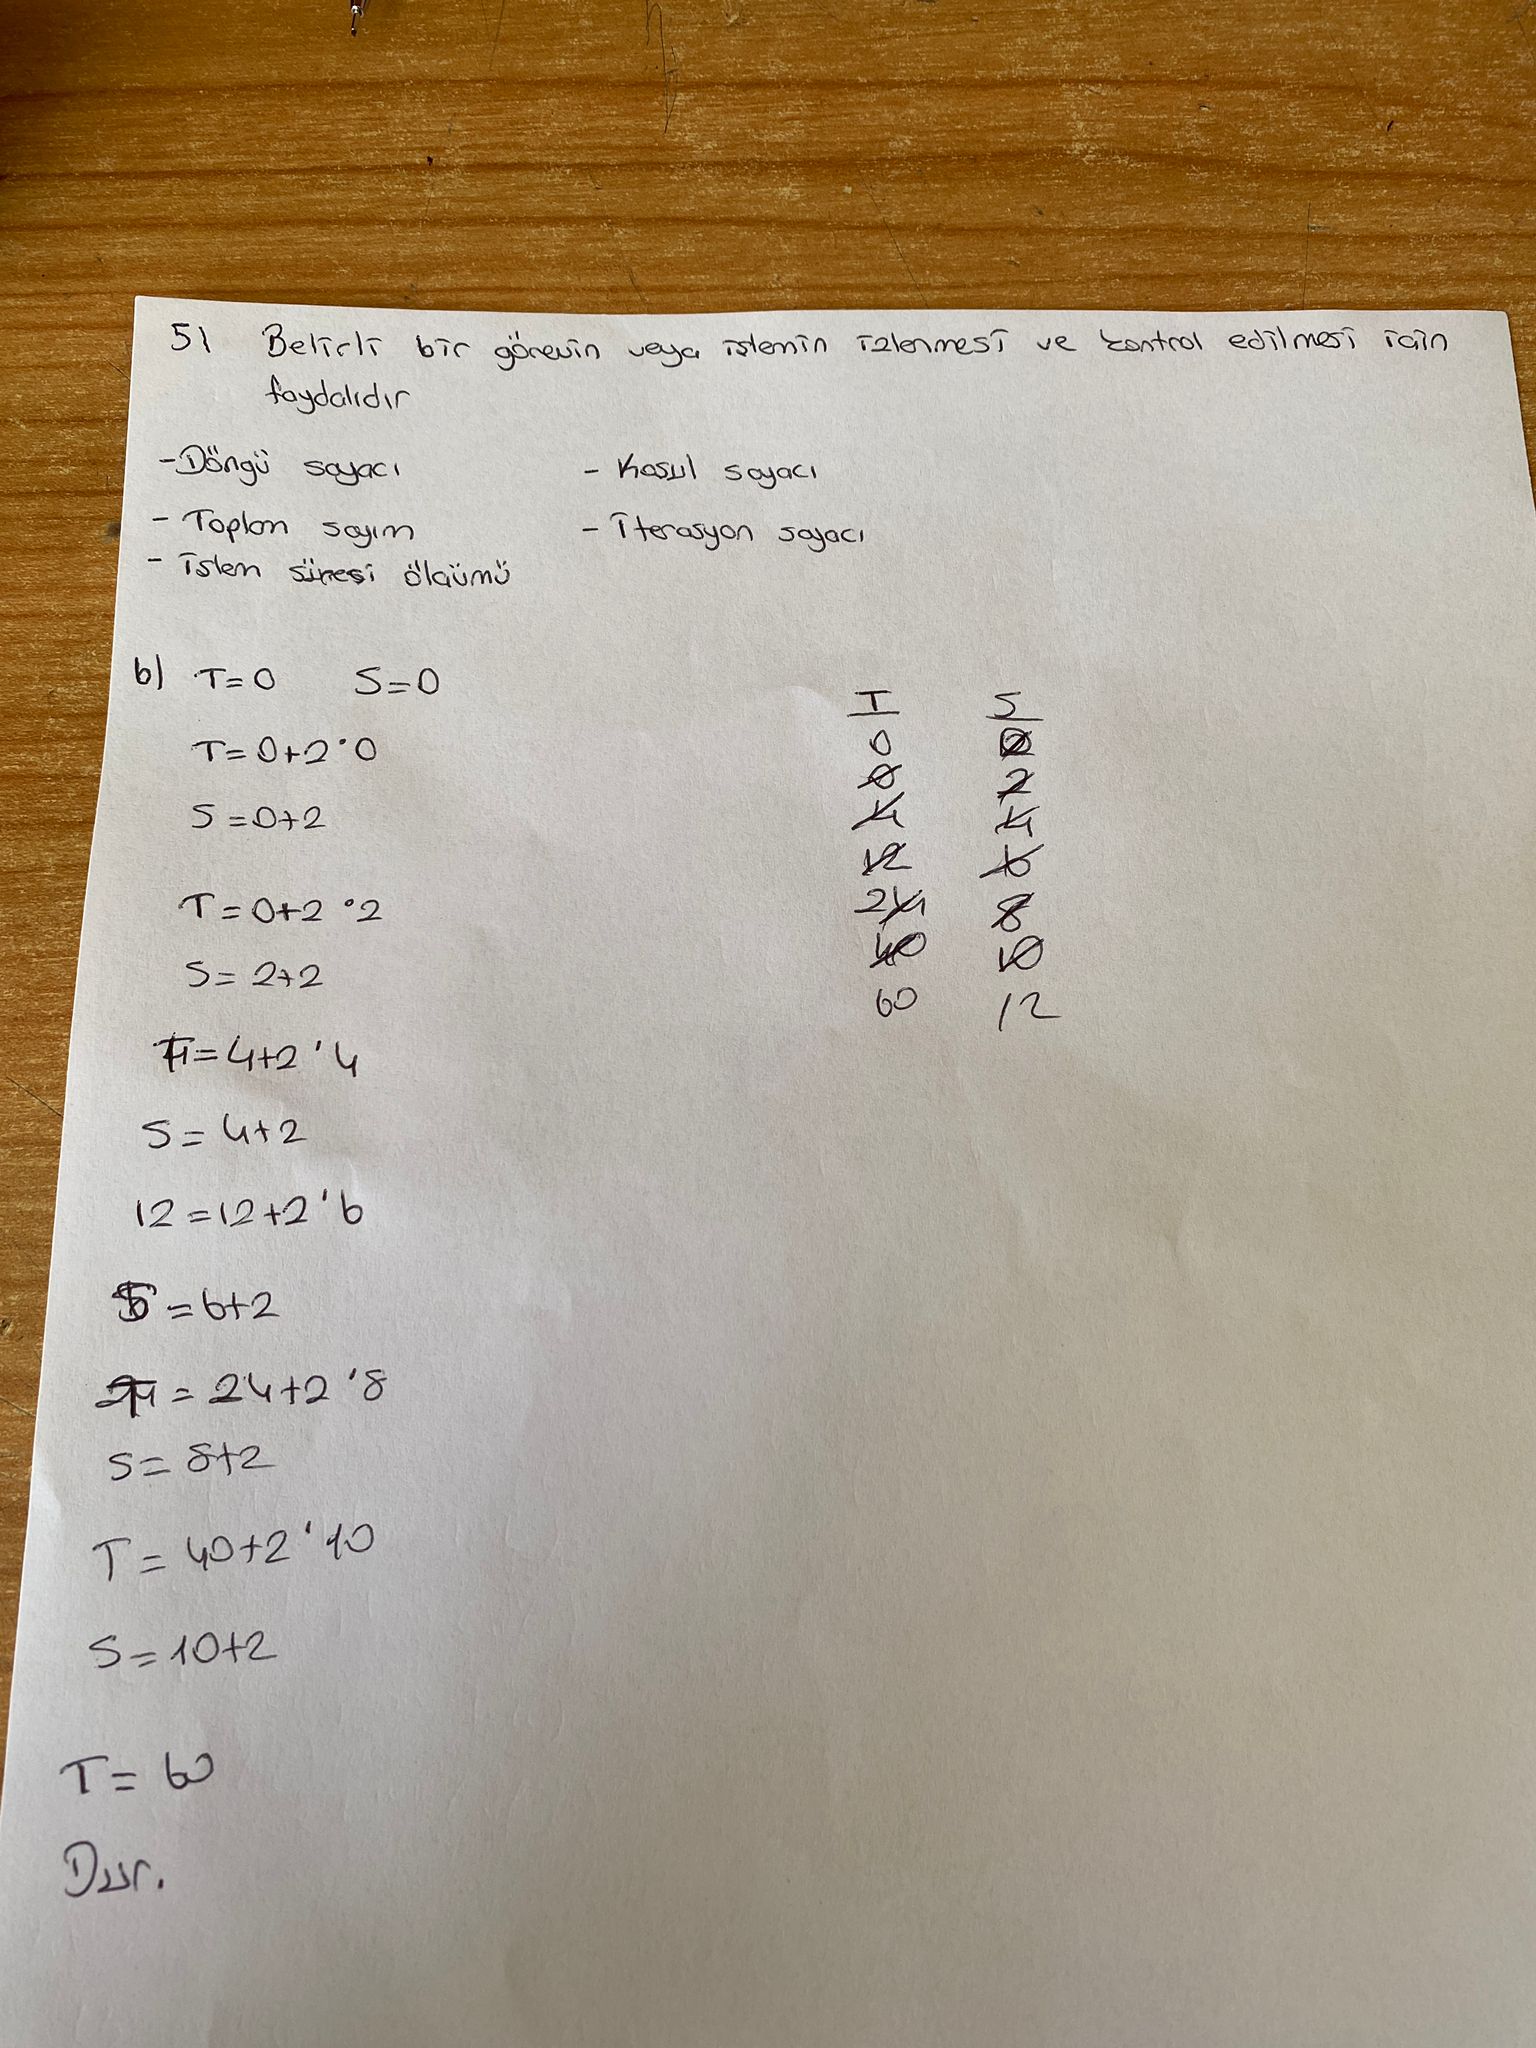 5) Belirli bir görevin veya işlemin izlenmesi ve kontrol edilmesi için
faydalıdır
- Döngü sayacı
- Koşul sayacı
- Toplam sayım
- İterasyon sayacı
- İşlem süresi ölçümü
b) T=0 S=0
T=0+2·0
S=0+2
T=0+2·2
S=2+2
T=4+2·4
S=4+2
12=12+2·6
S=6+2
T=24+2·8
S=8+2
T=40+2·10
S=10+2
T=60
Dur.
T S
0 0
0 2
4 4
12 6
24 8
40 10
60 12